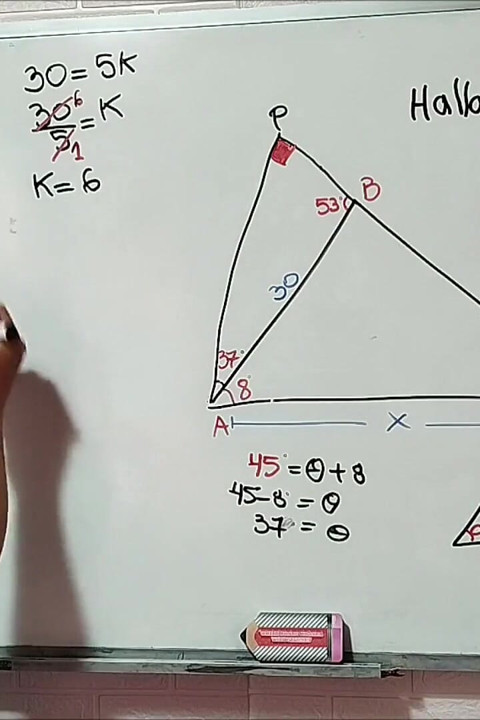 30 = 5K
30 6
5 1 = K
K = 6
Halla
P
B
53°
30
37°
8°
A
X
45° = θ + 8
45 - 8° = θ
37° = θ